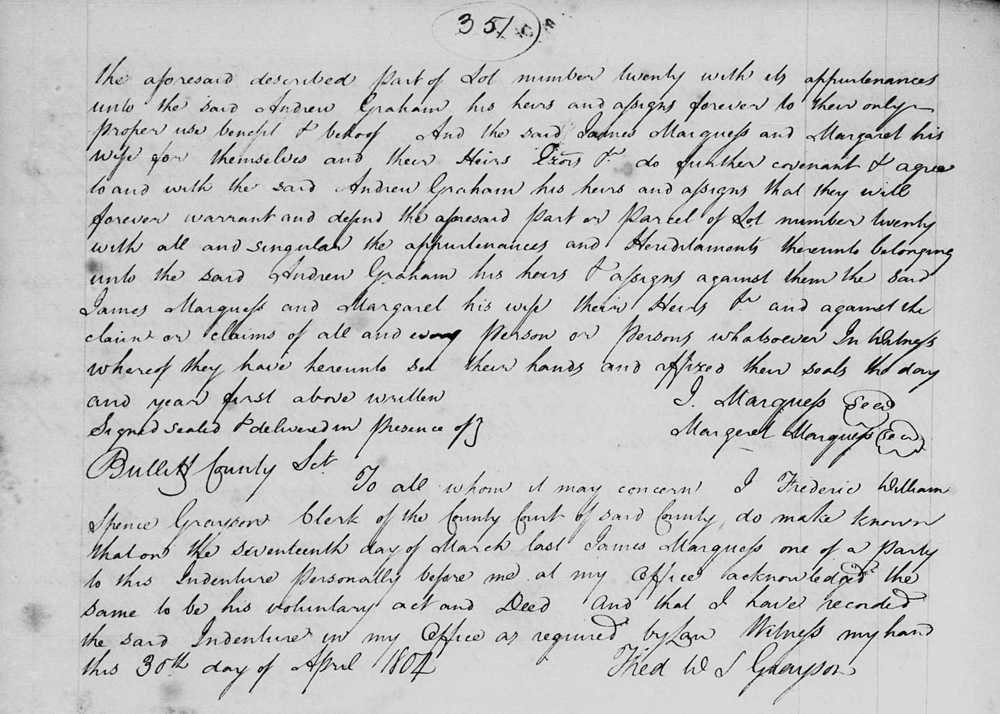 351
the aforesaid described part of Lot number twenty with its appurtenances
unto the said Andrew Graham his heirs and assigns forever to their only
proper use benefit & behoof And the said James Marquess and Margaret his
wife for themselves and their Heirs Exors &c do further covenant & agree
to and with the said Andrew Graham his heirs and assigns that they will
forever warrant and defend the aforesaid part or parcel of Lot number twenty
with all and singular the appurtenances and Heriditaments thereunto belonging
unto the said Andrew Graham his heirs & assigns against them the said
James Marquess and Margaret his wife their Heirs &c and against the
claim or claims of all and every person or persons whatsoever In Witness
whereof they have hereunto set their hands and affixed their seals the day
and year first above written J. Marquess Seal
Signed sealed & delivered in presence of} Margeret Marquess Seal
Bullitt County Sct.
To all whom it may concern I Frederic William
Spence Grayson Clerk of the County Court of said County, do make known
that on the seventeenth day of March last James Marquess one of a party
to this Indenture personally before me at my Office acknowledged the
same to be his voluntary act and Deed And that I have recorded
the said Indenture in my Office as required by law Witness my hand
this 30th day of April 1804 Fred W S Grayson